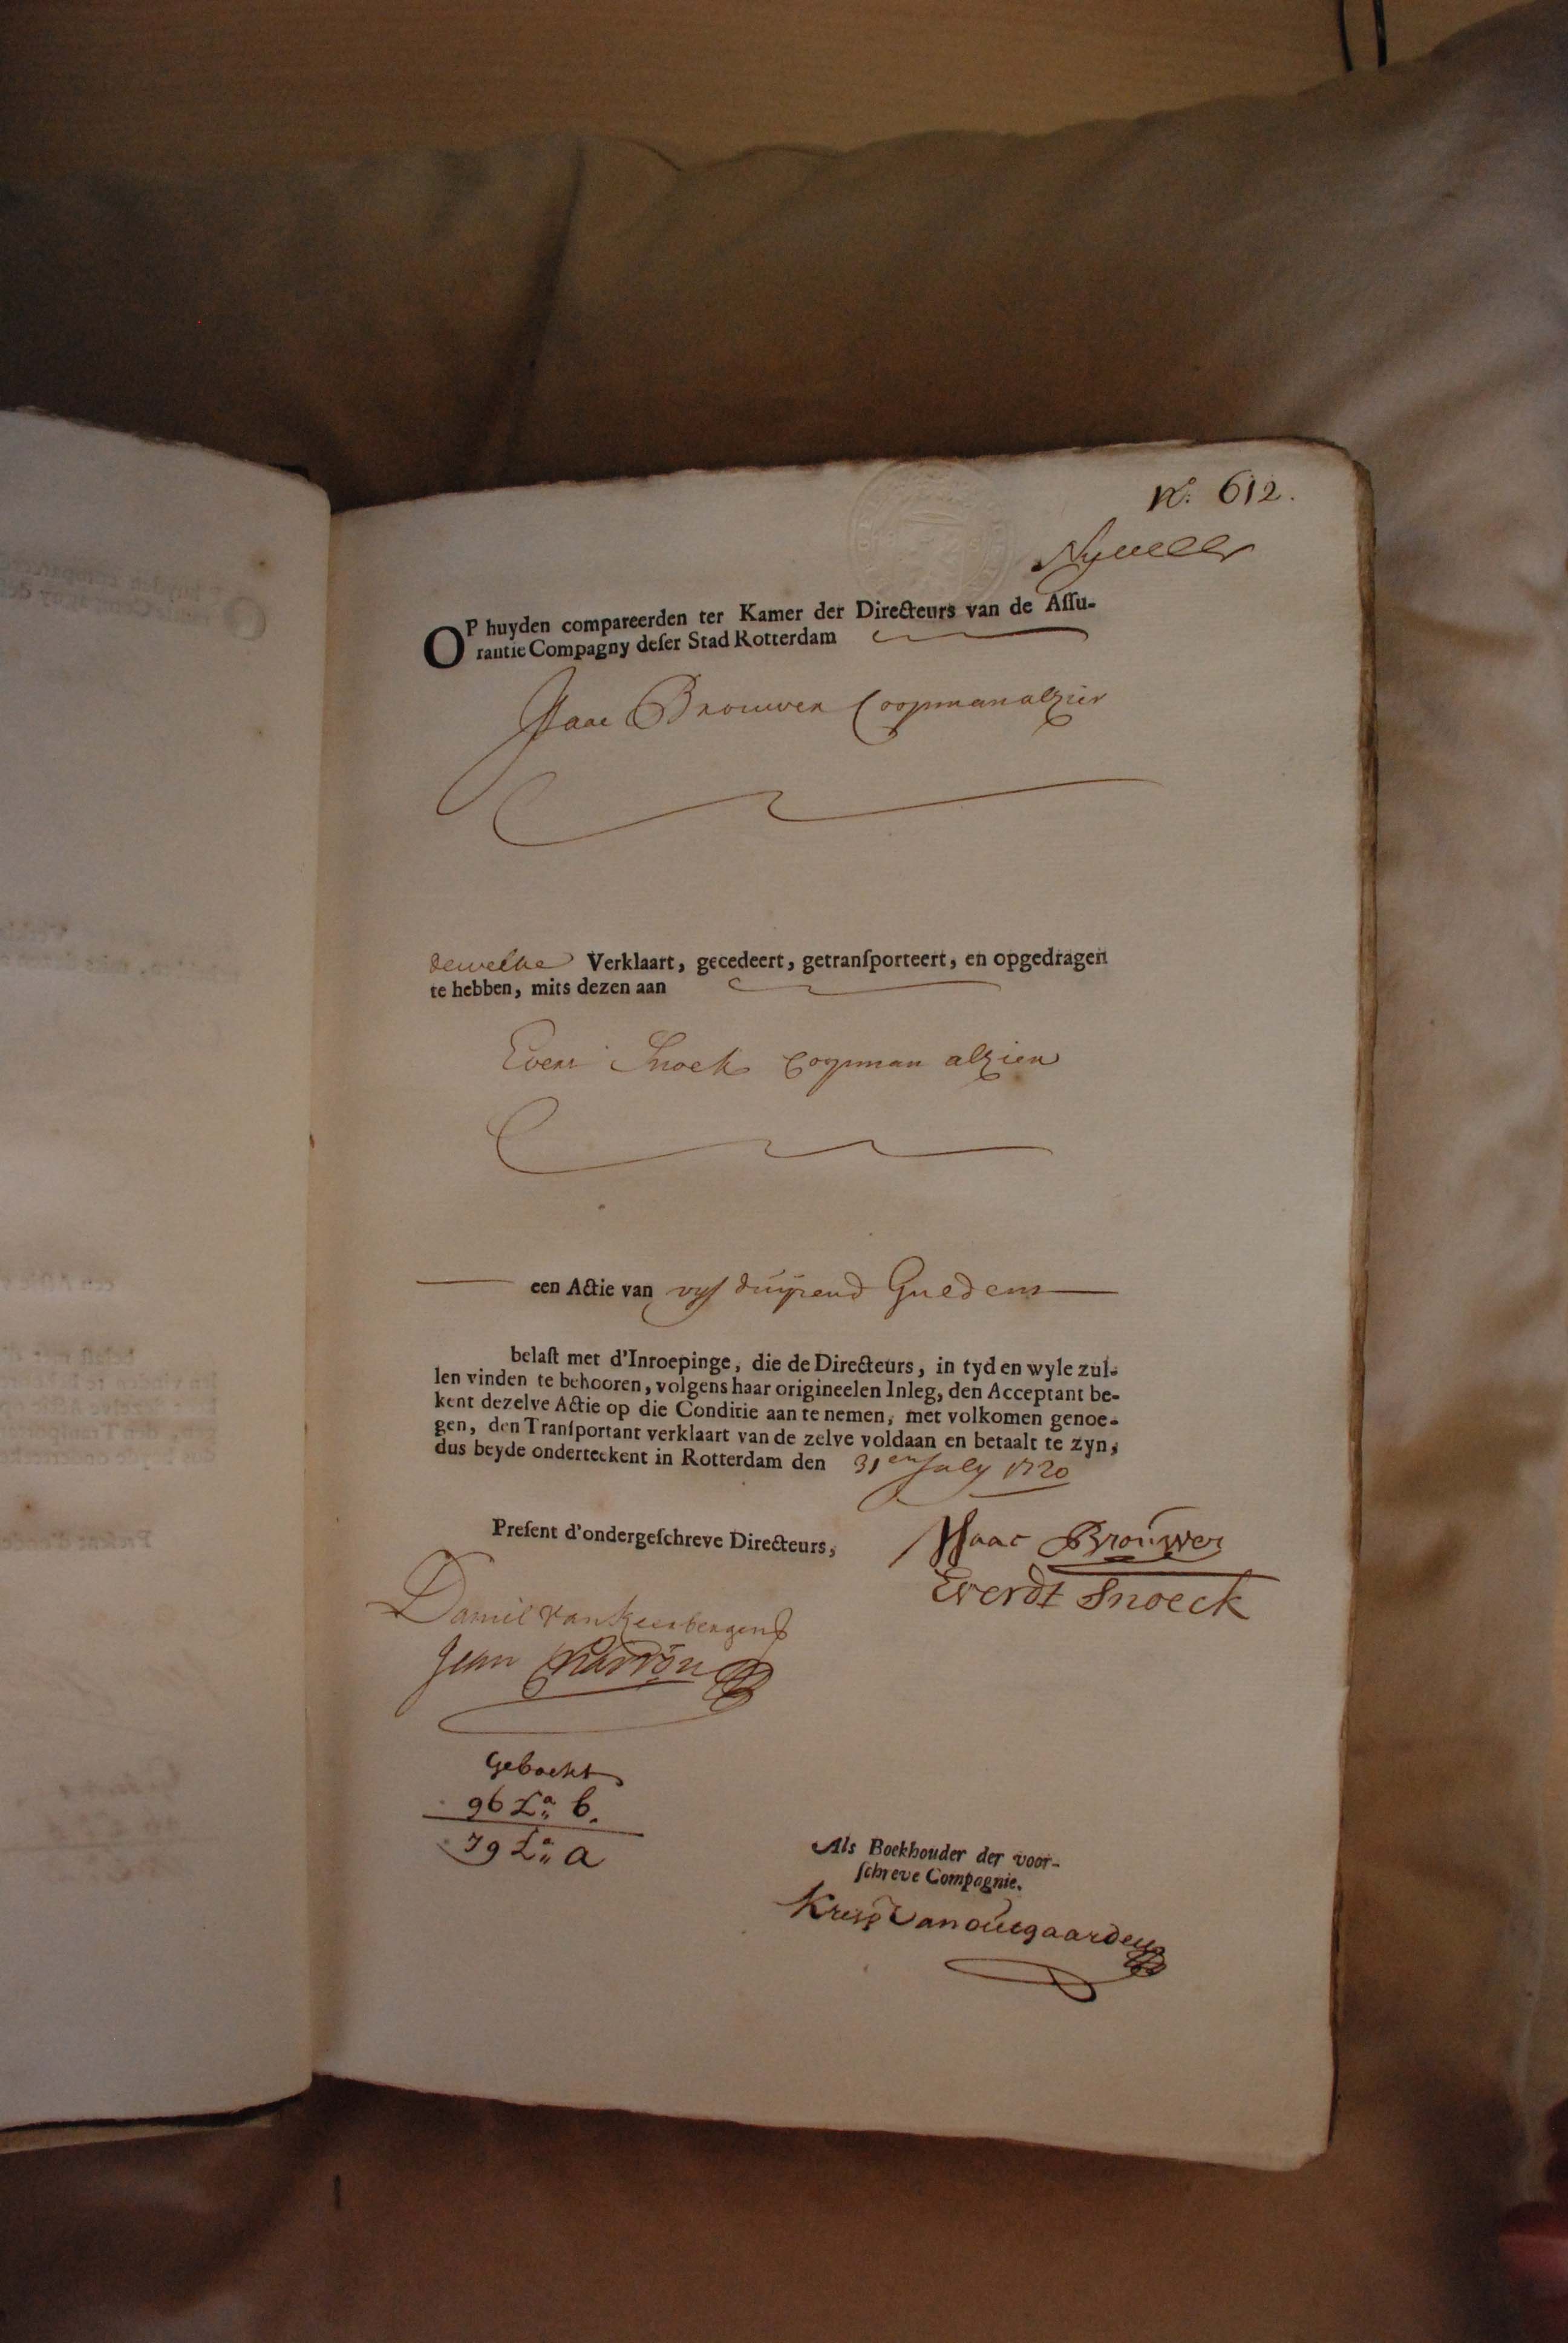 No. 612.
OP huyden compareerden ter Kamer der Directeurs van de Aſſu-
rantie Compagny deſer Stad Rotterdam
Isaac Brouwer Coopman alhier
dewelke Verklaart, gecedeert, getranſporteert, en opgedragen
te hebben, mits dezen aan
Evert Snoek Coopman alhier
een Actie van vyf duysend Guldens
belaſt met d'Inroepinge, die de Directeurs, in tyd en wyle zul-
len vinden te behooren, volgens haar origineelen Inleg, den Acceptant be-
kent dezelve Actie op die Conditie aan te nemen, met volkomen genoe-
gen, den Tranſportant verklaart van de zelve voldaan en betaalt te zyn,
dus beyde onderteekent in Rotterdam den 31en July 1720
Preſent d'ondergeſchreve Directeurs,
Isaac Brouwer
Everdt Snoeck
Daniel van Keerbergen
Jean Charron
Geboekt
96 La b.
79 La a
Als Boekhouder der voor-
ſchreve Compagnie.
Van outgaarden